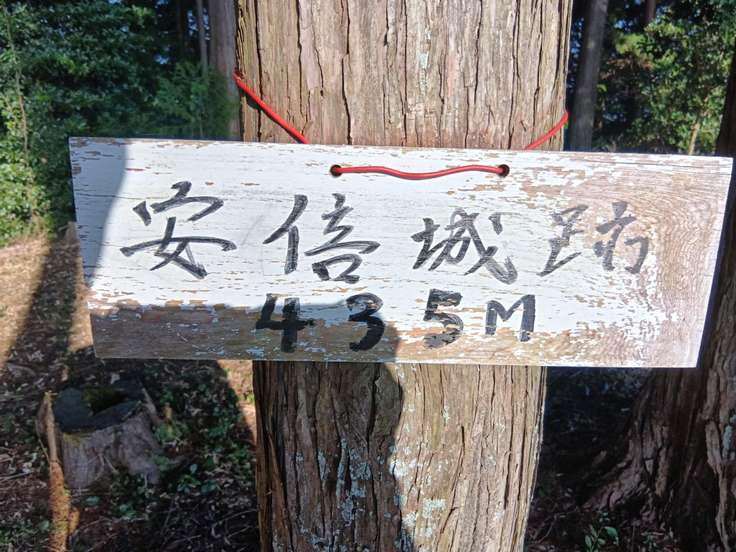 安倍城跡
435M